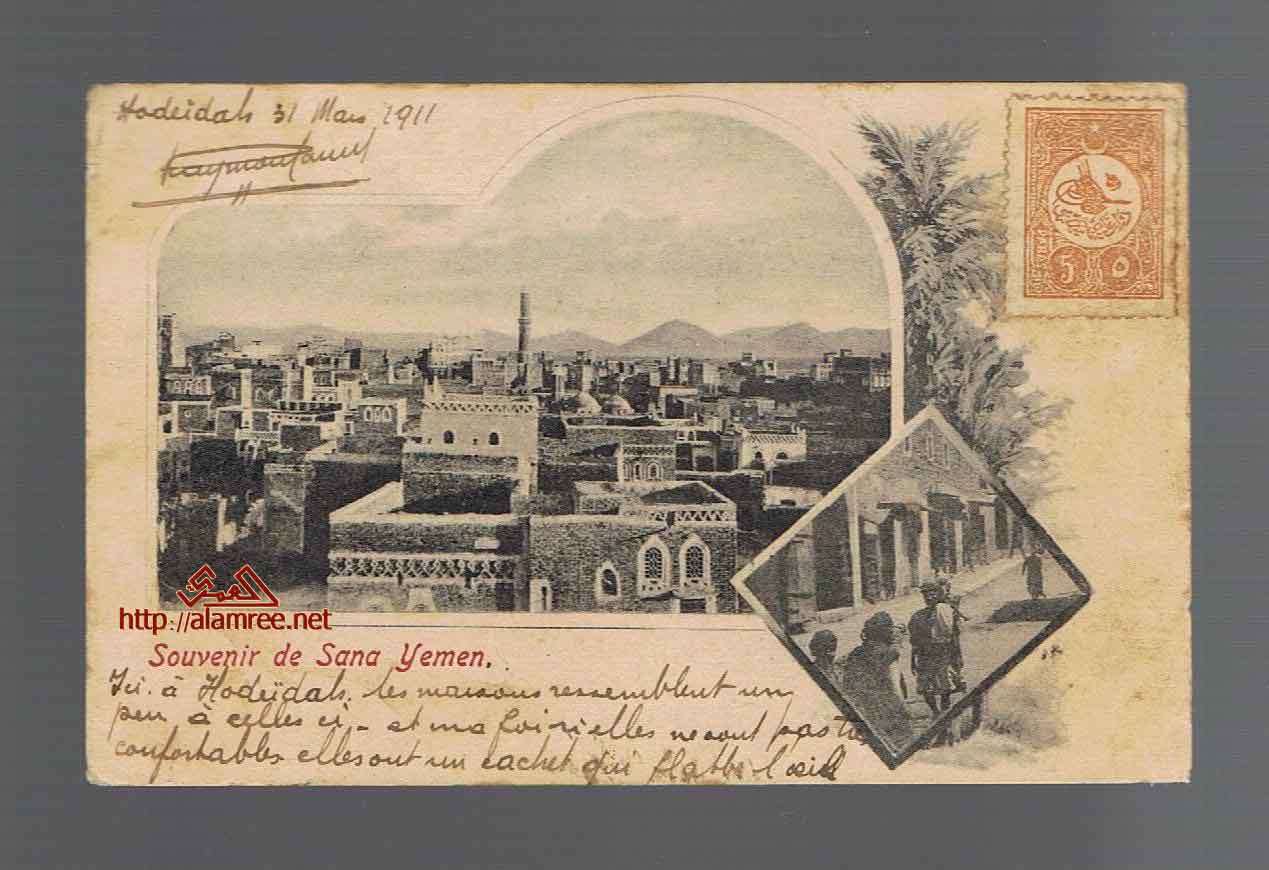 Hodeïdah 31 Mars 1911
5 ٥
العمري
http://alamree.net
Souvenir de Sana Yemen.
Ici à Hodeïdah. les maisons ressemblent un
peu à celles ci - et ma foi si elles ne sont pas très
confortables elles ont un cachet qui flatte l'œil